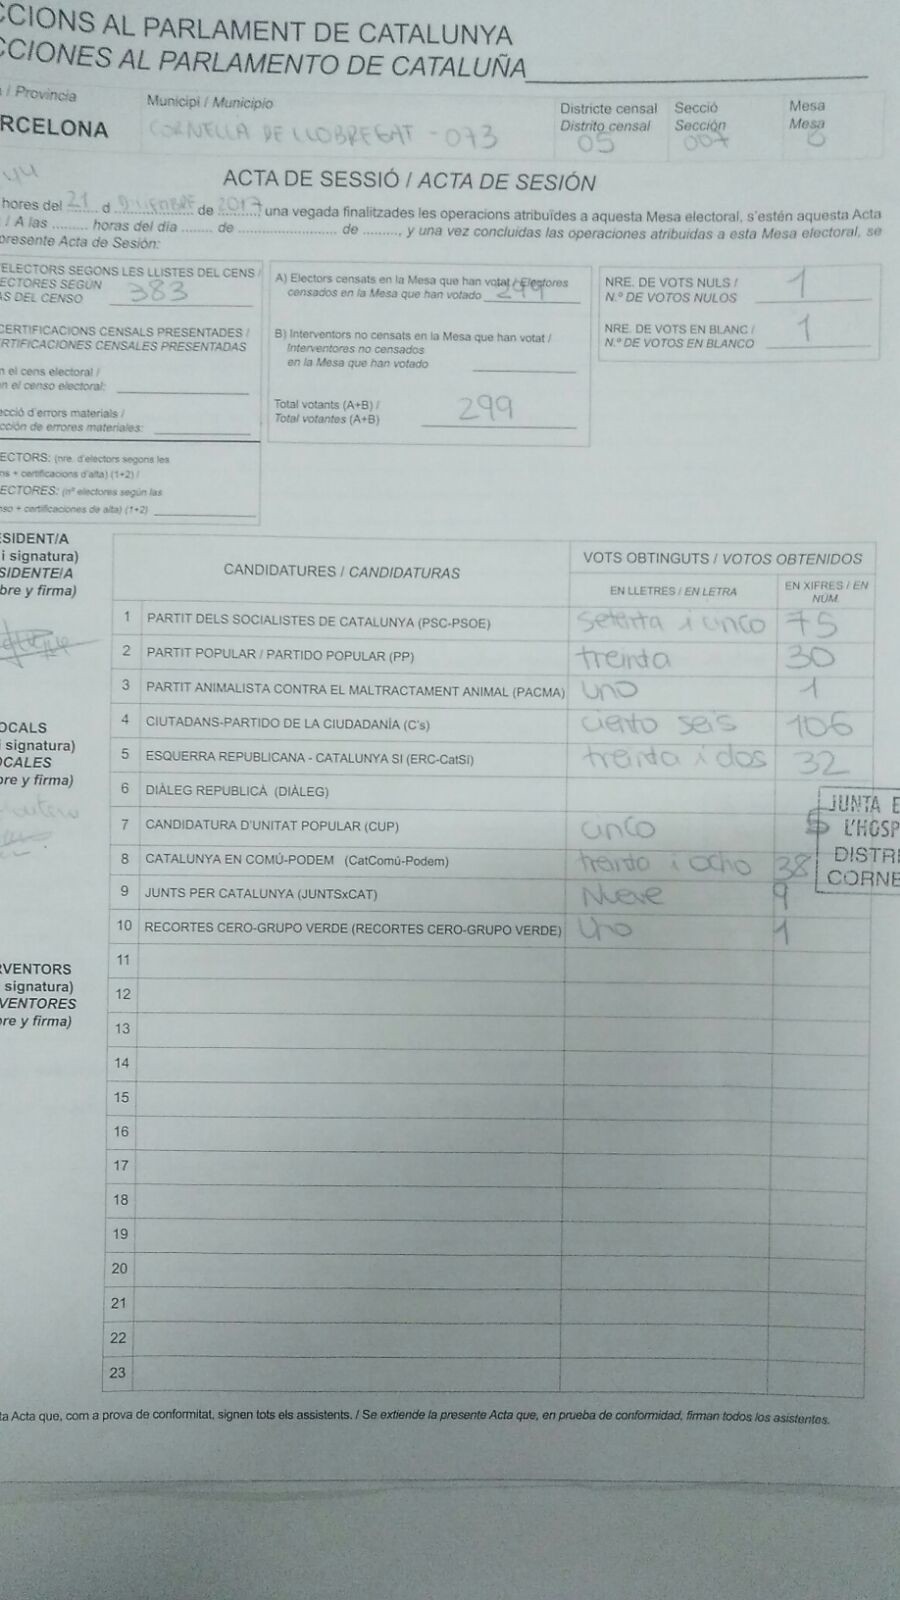 CCIONS AL PARLAMENT DE CATALUNYA
CCIONES AL PARLAMENTO DE CATALUÑA
/ Provincia
RCELONA
Municipi / Municipio
CORNELLÀ DE LLOBREGAT - 073
Districte censal
Distrito censal
05
Secció
Sección
007
Mesa
Mesa
ACTA DE SESSIÓ / ACTA DE SESIÓN
hores del 21 d DICIEMBRE de 2017, una vegada finalitzades les operacions atribuïdes a aquesta Mesa electoral, s'estén aquesta Acta
/ A las ......... horas del día ....... de ........................ de ........., y una vez concluidas las operaciones atribuidas a esta Mesa electoral, se
presente Acta de Sesión:
ELECTORS SEGONS LES LLISTES DEL CENS /
ECTORES SEGÚN
AS DEL CENSO 383
CERTIFICACIONS CENSALS PRESENTADES /
RTIFICACIONES CENSALES PRESENTADAS
n el cens electoral /
n el censo electoral:
ecció d'errors materials /
cción de errores materiales:
ECTORS: (nre. d'electors segons les
ns + certificacions d'alta) (1+2) /
ECTORES: (nº electores según las
nso + certificaciones de alta) (1+2)
A) Electors censats en la Mesa que han votat / Electores
censados en la Mesa que han votado 299
B) Interventors no censats en la Mesa que han votat /
Interventores no censados
en la Mesa que han votado
Total votants (A+B) /
Total votantes (A+B) 299
NRE. DE VOTS NULS /
N.º DE VOTOS NULOS 1
NRE. DE VOTS EN BLANC /
N.º DE VOTOS EN BLANCO 1
ESIDENT/A
i signatura)
SIDENTE/A
bre y firma)
OCALS
i signatura)
OCALES
bre y firma)
RVENTORS
signatura)
VENTORES
bre y firma)
CANDIDATURES / CANDIDATURAS
VOTS OBTINGUTS / VOTOS OBTENIDOS
EN LLETRES / EN LETRA
EN XIFRES / EN NÚM.
1 PARTIT DELS SOCIALISTES DE CATALUNYA (PSC-PSOE) setenta i cinco 75
2 PARTIT POPULAR / PARTIDO POPULAR (PP) treinta 30
3 PARTIT ANIMALISTA CONTRA EL MALTRACTAMENT ANIMAL (PACMA) uno 1
4 CIUTADANS-PARTIDO DE LA CIUDADANÍA (C's) ciento seis 106
5 ESQUERRA REPUBLICANA - CATALUNYA SI (ERC-CatSí) treinta i dos 32
6 DIÀLEG REPUBLICÀ (DIÀLEG)
7 CANDIDATURA D'UNITAT POPULAR (CUP) cinco 5
8 CATALUNYA EN COMÚ-PODEM (CatComú-Podem) treinta i ocho 38
9 JUNTS PER CATALUNYA (JUNTSxCAT) Nueve 9
10 RECORTES CERO-GRUPO VERDE (RECORTES CERO-GRUPO VERDE) Uno 1
JUNTA E
L'HOSP
DISTRI
CORNE
11
12
13
14
15
16
17
18
19
20
21
22
23
ta Acta que, com a prova de conformitat, signen tots els assistents. / Se extiende la presente Acta que, en prueba de conformidad, firman todos los asistentes.